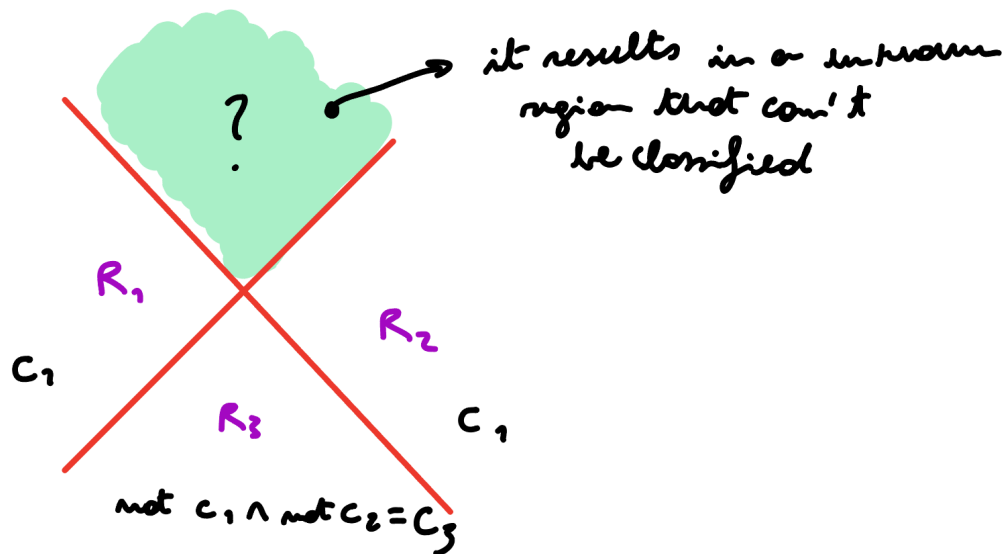 ?
it results in a unknown
region that can't
be classified
R1
R2
C1
R3
C1
not C1 ∧ not C2 = C3